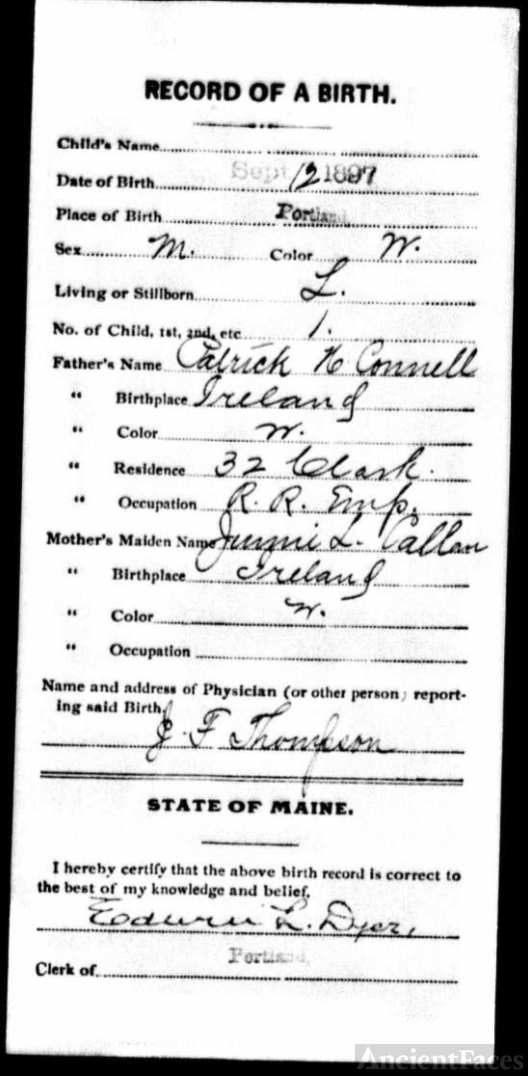 RECORD OF A BIRTH.
Child's Name
Date of Birth Sept 12 1897
Place of Birth Portland,
Sex M. Color W.
Living or Stillborn L.
No. of Child, 1st, 2nd, etc 1.
Father's Name Patrick H Connell
" Birthplace Ireland
" Color W.
" Residence 32 Clark.
" Occupation R. R. Emp.
Mother's Maiden Name Jennie L. Callan
" Birthplace Ireland
" Color W.
" Occupation
Name and address of Physician (or other person) report-
ing said Birth.
J. F Thompson
STATE OF MAINE.
I hereby certify that the above birth record is correct to
the best of my knowledge and belief.
Edwin L. Dyer,
Portland,
Clerk of
AncientFaces